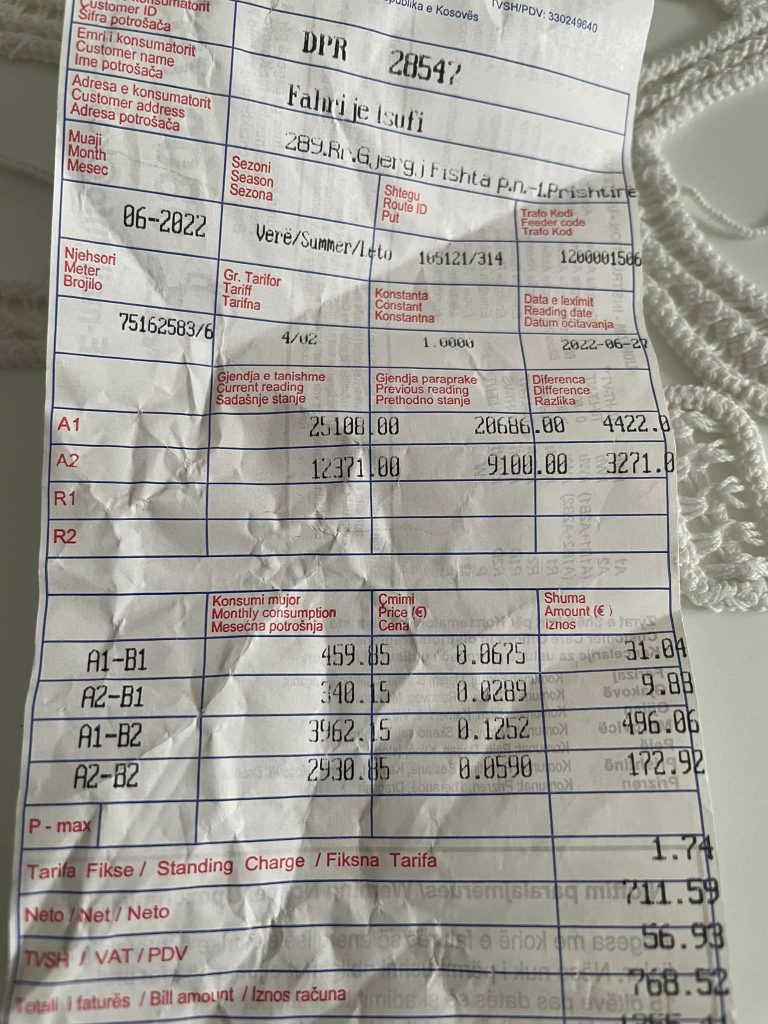 konsumatorit
Republika e Kosovës
TVSH/PDV: 330249640
Customer ID
Šifra potrošača
DPR 28547
Emri i konsumatorit
Customer name
Ime potrošača
Fahrije Isufi
Adresa e konsumatorit
Customer address
Adresa potrošača
289.Rr.Gjergj Fishta p.n.-1.Prishtinë
Muaji
Month
Mesec
06-2022
Sezoni
Season
Sezona
Verë/Summer/Leto
Shtegu
Route ID
Put
105121/314
Trafo Kodi
Feeder code
Trafo Kod
1200001506
Njehsori
Meter
Brojilo
75162583/6
Gr. Tarifor
Tariff
Tarifna
4/02
Konstanta
Constant
Konstantna
1.0000
Data e leximit
Reading date
Datum očitavanja
2022-06-27
Gjendja e tanishme
Current reading
Sadašnje stanje
Gjendja paraprake
Previous reading
Prethodno stanje
Diferenca
Difference
Razlika
A1 25108.00 20686.00 4422.0
A2 12371.00 9100.00 3271.0
R1
R2
Konsumi mujor
Monthly consumption
Mesečna potrošnja
Çmimi
Price (€)
Cena
Shuma
Amount (€)
Iznos
A1-B1 459.85 0.0675 31.04
A2-B1 340.15 0.0289 9.83
A1-B2 3962.15 0.1252 496.06
A2-B2 2930.85 0.0590 172.92
P - max
Tarifa Fikse / Standing Charge / Fiksna Tarifa 1.74
Neto / Net / Neto 711.59
TVSH / VAT / PDV 56.93
Totali i faturës / Bill amount / Iznos računa 768.52